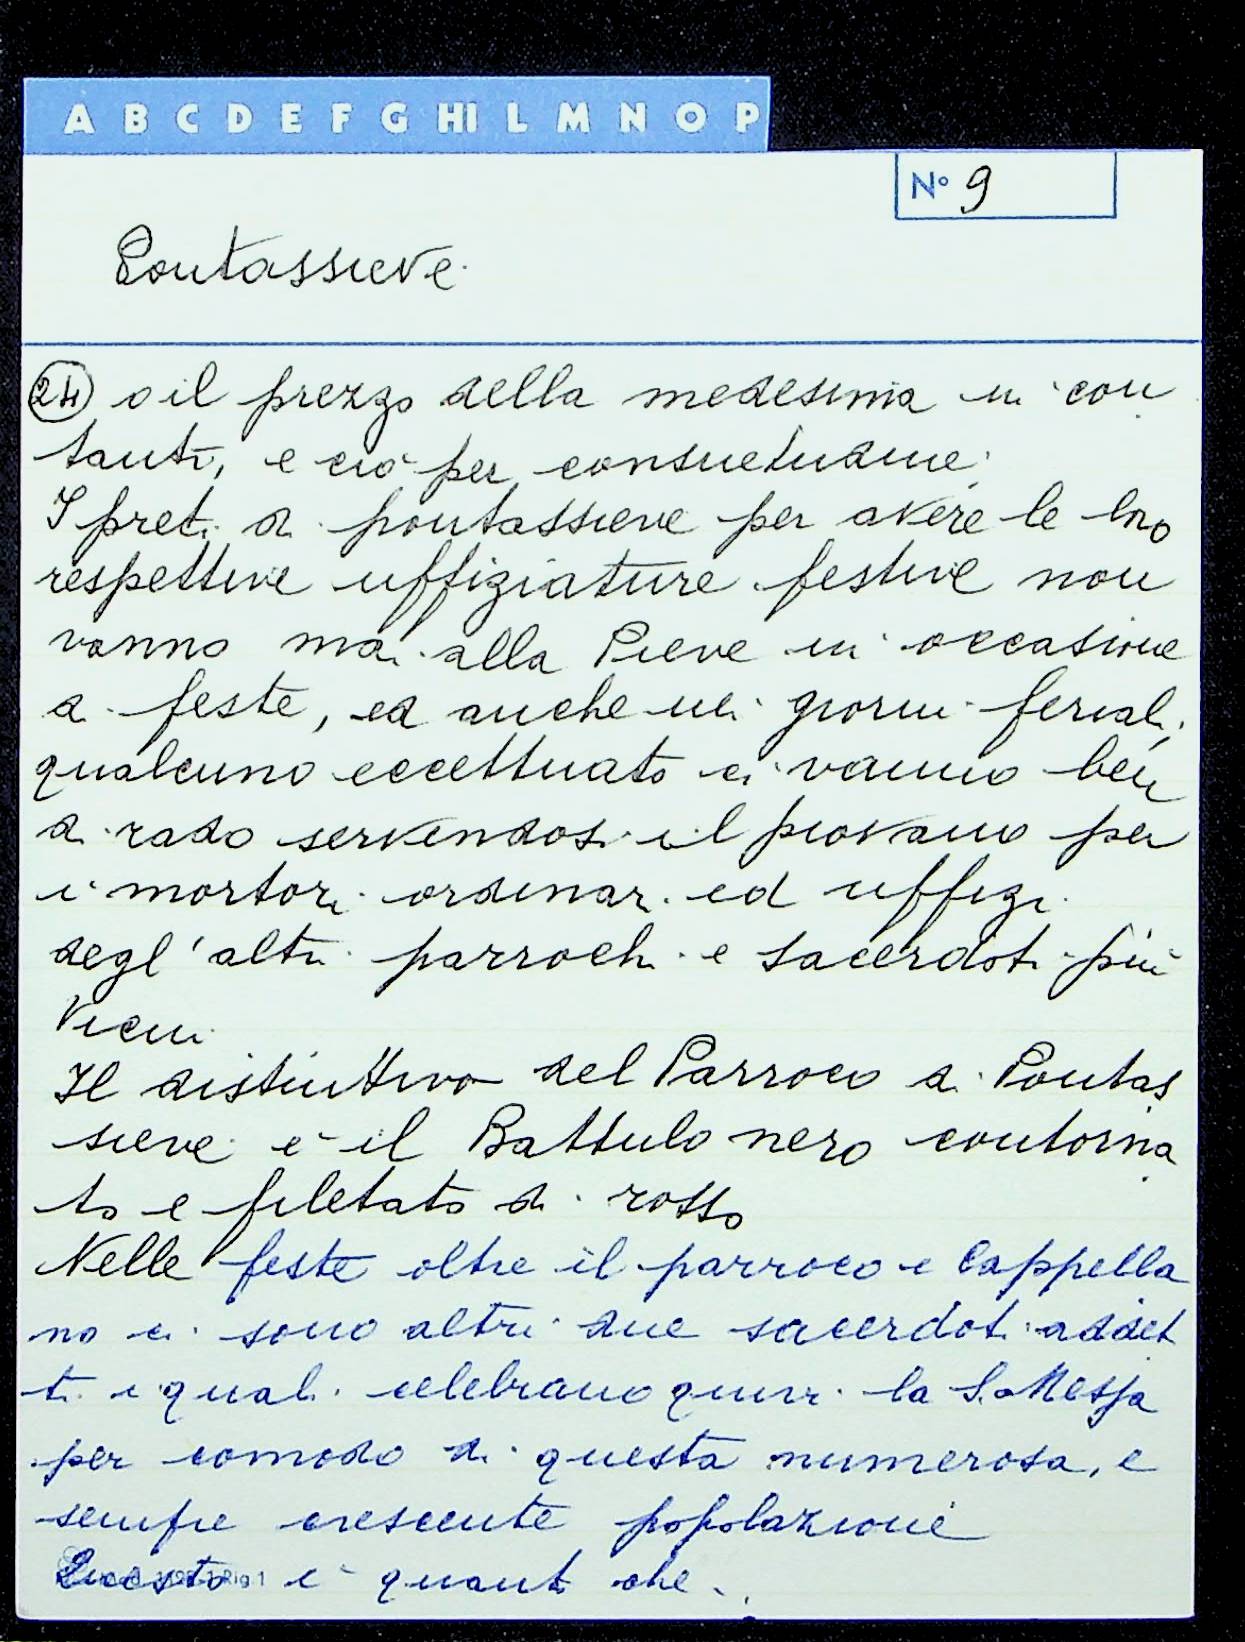 A B C D E F G HI L M N O P
N° 9
Pontassieve
24 o il prezzo della medesima in con
tanti, e ciò per consuetudine.
I preti di pontassieve per avere le loro
respettive uffiziature festive non
vanno mai alla Pieve in occasione
di feste, ed anche nei giorni feriali,
qualcuno eccettuato ci vanno ben
di rado servendosi il piovano per
i mortori ordinari ed uffizi
degl'altri parrochi e sacerdoti più
vicini
Il distintivo del Parroco di Pontas
sieve è il Battulo nero contorna
to e filetato di rosso
Nelle feste oltre il parroco e Cappella
no ci sono altri due sacerdoti addet
ti i quali celebrano quivi la S. Messa
per comodo di questa numerosa, e
sempre crescente popolazione
Questo è quant che